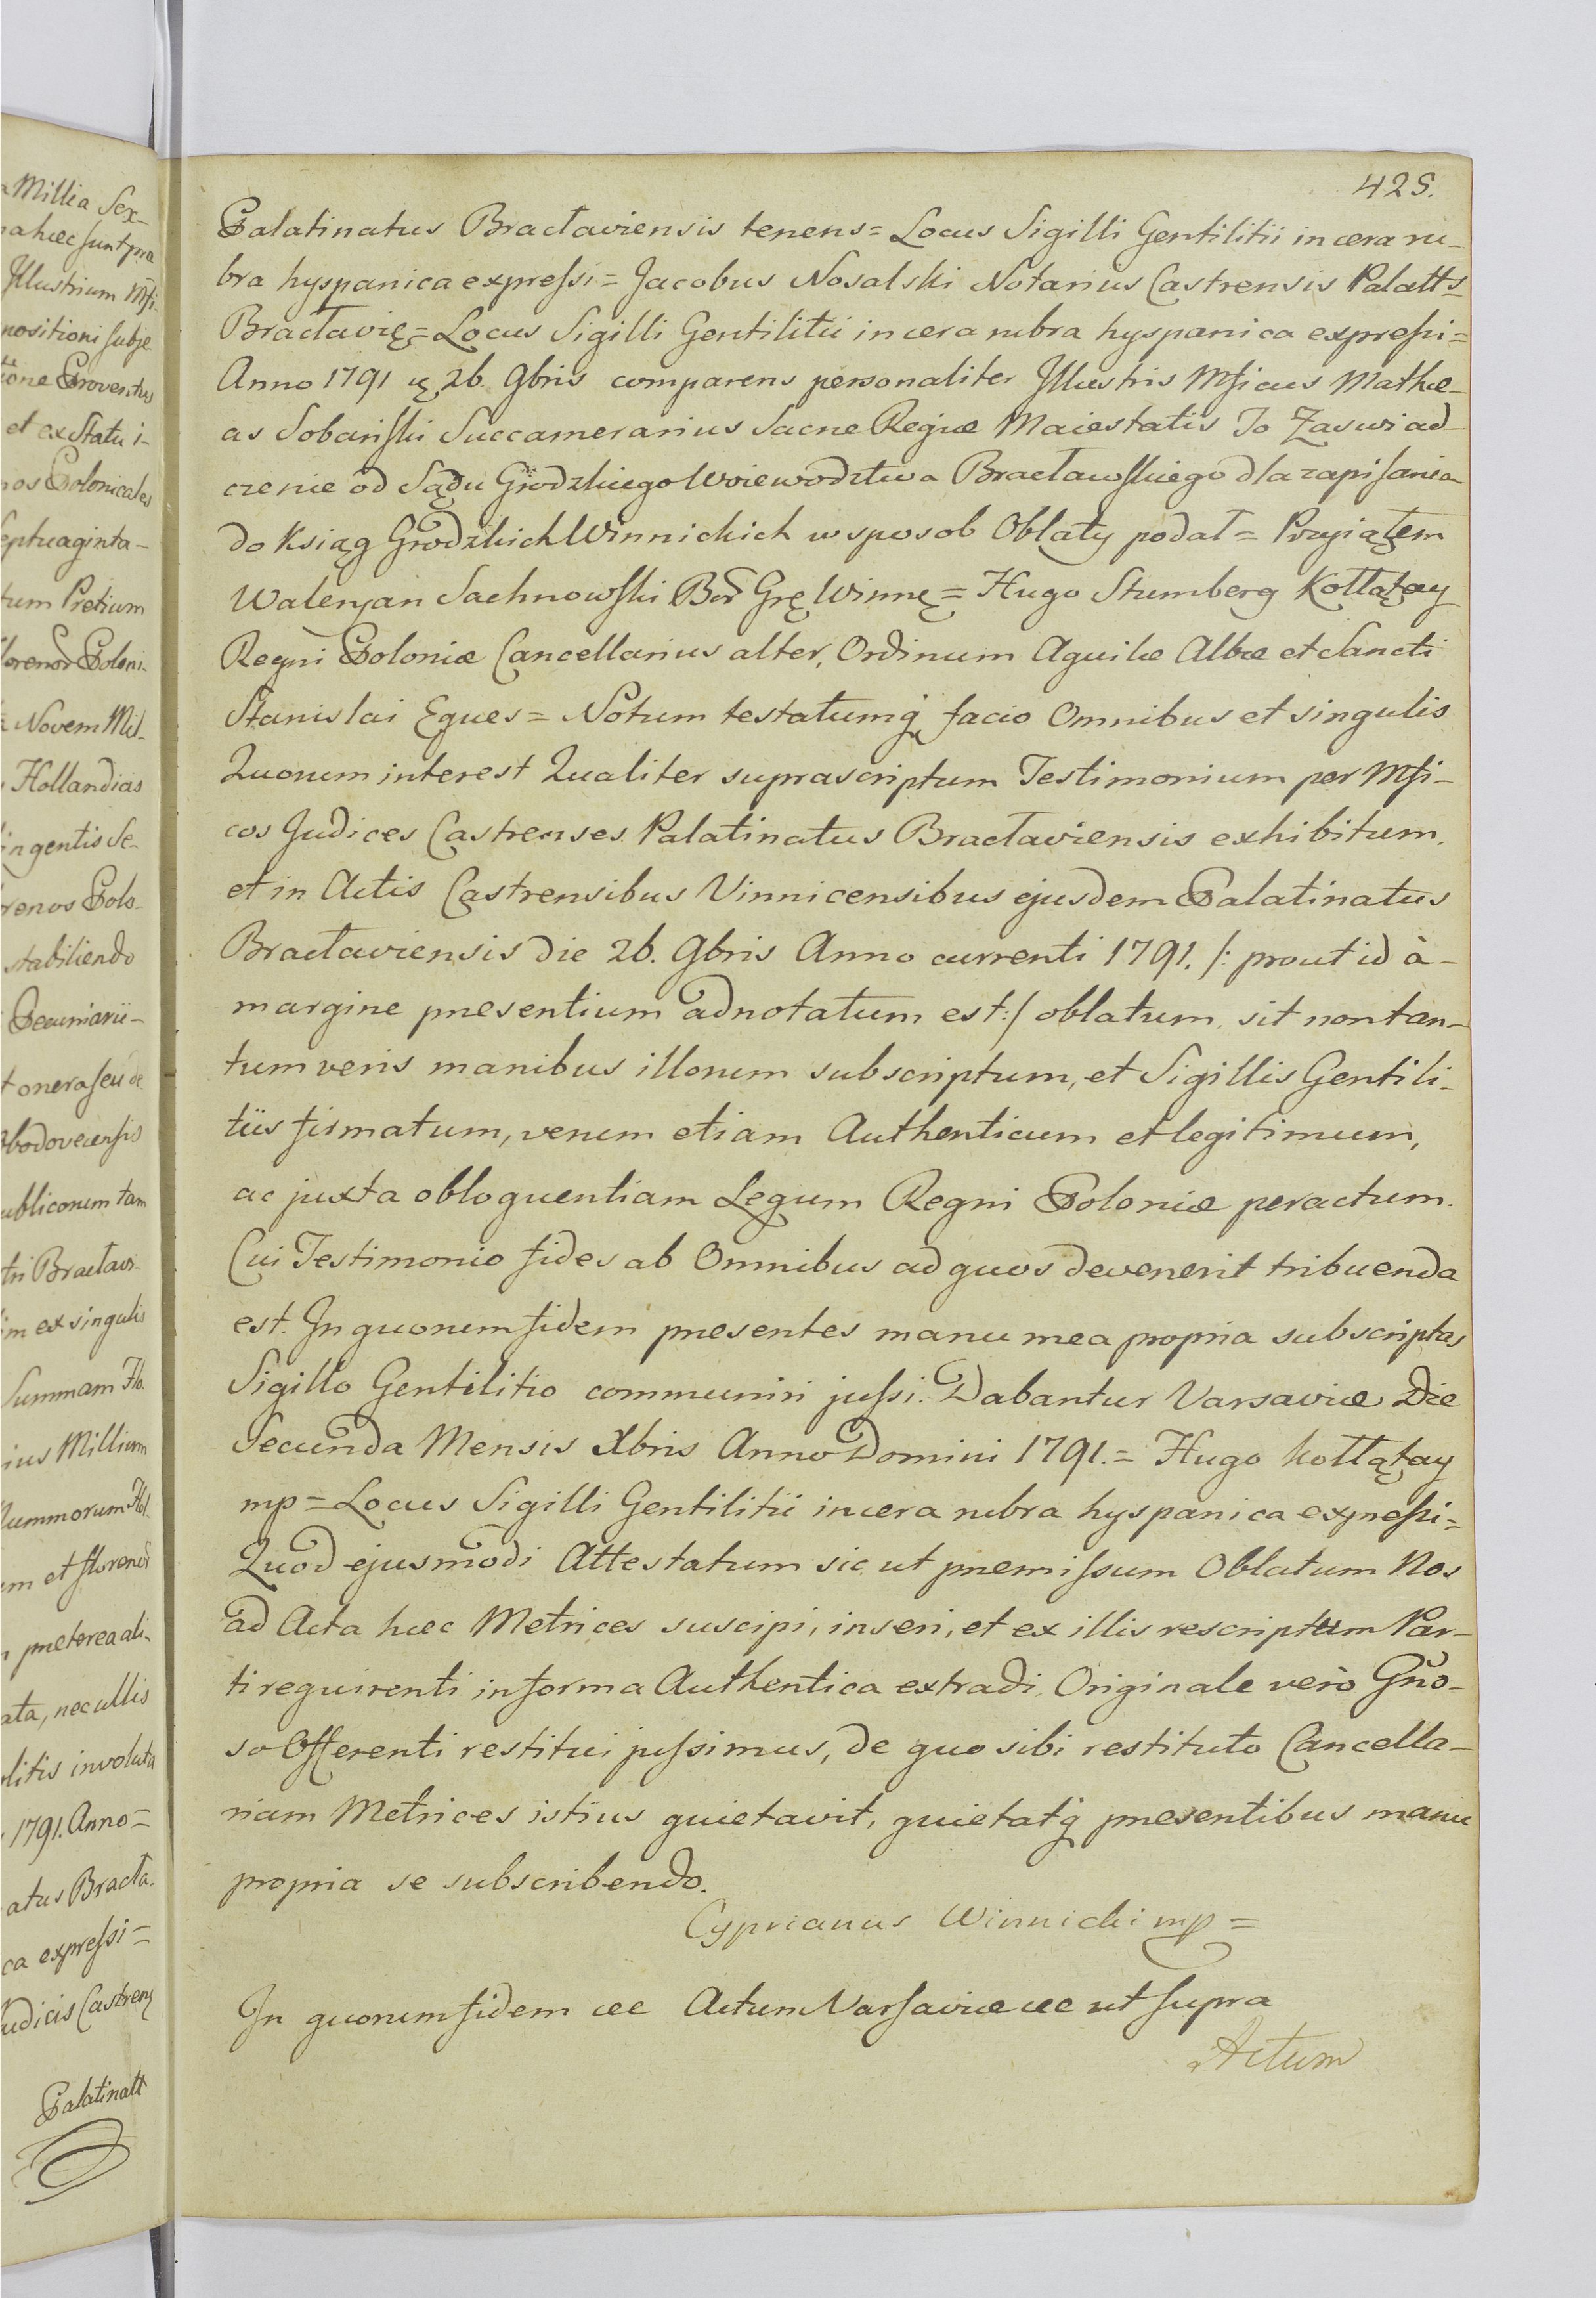 425.
Palatinatus Bracłaviensis tenens = Locus Sigilli Gentilitii in cera ru-
bra hyspanica expreſsi = Jacobus Nosalski Notarius Castrensis Palatt⁓s =
Bracłavię = Locus Sigilli Gentilitii in cera rubra hyspanica expreſsi =
Anno 1791 26. 9bris comparens personaliter Jllustris Mficus Mathæ-
as Sobanſki Succamerarius Sacræ Regiæ Maiestatis To Zaswiad-
czenie od Sądu Grodzkiego Woiewodztwa Bracławſkiego dla zapiſania
do Ksiąg Grodzkich Winnickich w sposob Oblaty podał = Przyiąłem
Waleryan Sachnowſki Grę Winnę = Hugo Stumberg Kołłątay
Regni Poloniæ Cancellarius alter, Ordinum Aquilæ Albæ et Sancti
Stanislai Eques = Notum testatumq́ facio Omnibus et singulis
Quorum interest Qualiter suprascriptum Testimonium per Mfi-
cos Judices Castrenses Palatinatus Bracłaviensis exhibitum,
et in Actis Castrensibus Vinnicensibus ejusdem Palatinatus
Bracłaviensis Die 26. 9bris Anno currenti 1791. /: prout id à-
margine præsentium adnotatum est :/ oblatum, sit non tan-
tum veris manibus illorum subscriptum, et Sigillis Gentili-
tiis firmatum, verum etiam Authenticum et legitimum,
ac juxta obloquentiam Legum Regni Poloniæ peractum.
Cui Testimonio fides ab Omnibus ad quos devenerit tribuenda
est. Jn quorum fidem præsentes manu mea propria subscriptas
Sigillo Gentilitio communiri juſsi. Dabantur Varsaviæ Die
Secunda Mensis Xbris Anno Domini 1791. = Hugo Kołłątay
mp = Locus Sigilli Gentilitii in cera rubra hyspanica expreſsi =
Quod ejusmodi Attestatum sic ut præmiſsum Oblatum Nos
ad Acta hæc Metrices suscipi, inseri, et ex illis rescriptum Par-
ti requirenti in forma Authentica extradi, Originale verò Gño-
so Offerenti restitui juſsimus, de quo sibi restituto Cancella-
riam Metrices istius quietavit, quietatq́ præsentibus manu
propria se subscribendo.
Cyprianus Winnicki mp =
Jn quorum fidem &c Actum Varſaviæ &c ut ſupra
Actum
a Millia Sex-
a hæc ſunt præ
Jllustrium Mfi-
positioni ſubje
tione Proventus
et ex Statu i-
nos Polonicales
Septuaginta-
tum Pretium
lorenor Poloni-
a Novem Mil-
Hollandicis
ingentis Se-
renos Polo-
stabiliendo
Pecuniarii-
t onera ſeu de
Obodovecensis
ublicorum tam
tri Bracłavi-
im ex singulis
Summam Flo
ius Millium
Nummorum Hol
um et florenor
præterea ali-
ata, nec ullis
litis involuta
1791. Anno =
atus Bracła-
ca expreſsi =
udicis Castrens
Palatinatt